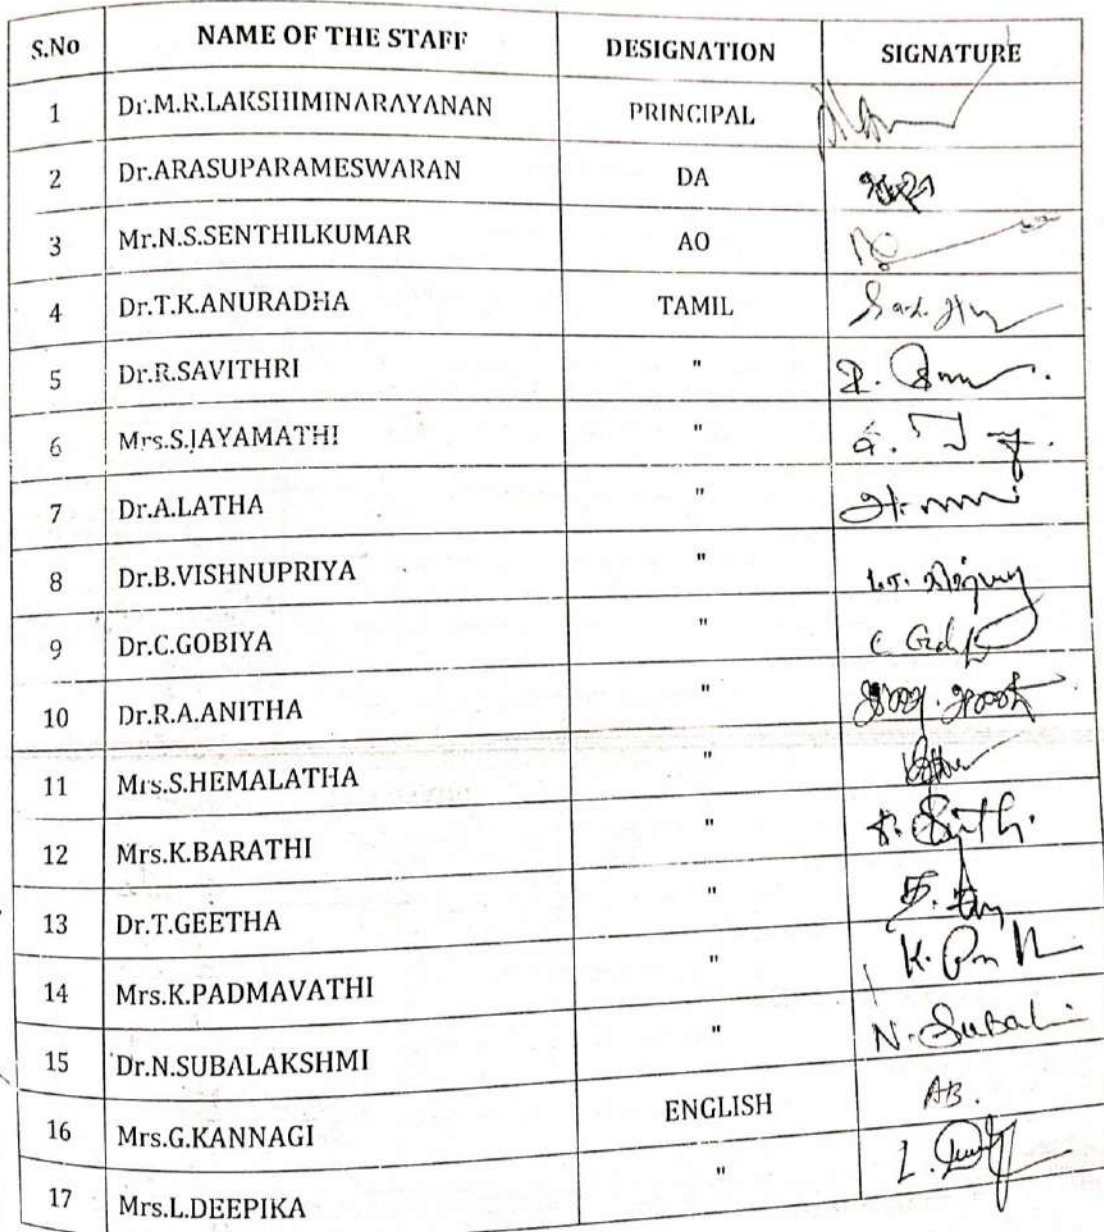 S.No NAME OF THE STAFF DESIGNATION SIGNATURE
1 Dr.M.R.LAKSHIMINARAYANAN PRINCIPAL
2 Dr.ARASUPARAMESWARAN DA
3 Mr.N.S.SENTHILKUMAR AO
4 Dr.T.K.ANURADHA TAMIL
5 Dr.R.SAVITHRI "
6 Mrs.S.JAYAMATHI "
7 Dr.A.LATHA "
8 Dr.B.VISHNUPRIYA "
9 Dr.C.GOBIYA " C
10 Dr.R.A.ANITHA "
11 Mrs.S.HEMALATHA "
12 Mrs.K.BARATHI "
13 Dr.T.GEETHA "
14 Mrs.K.PADMAVATHI " K.
15 Dr.N.SUBALAKSHMI " N.
16 Mrs.G.KANNAGI ENGLISH AB.
17 Mrs.L.DEEPIKA " L.